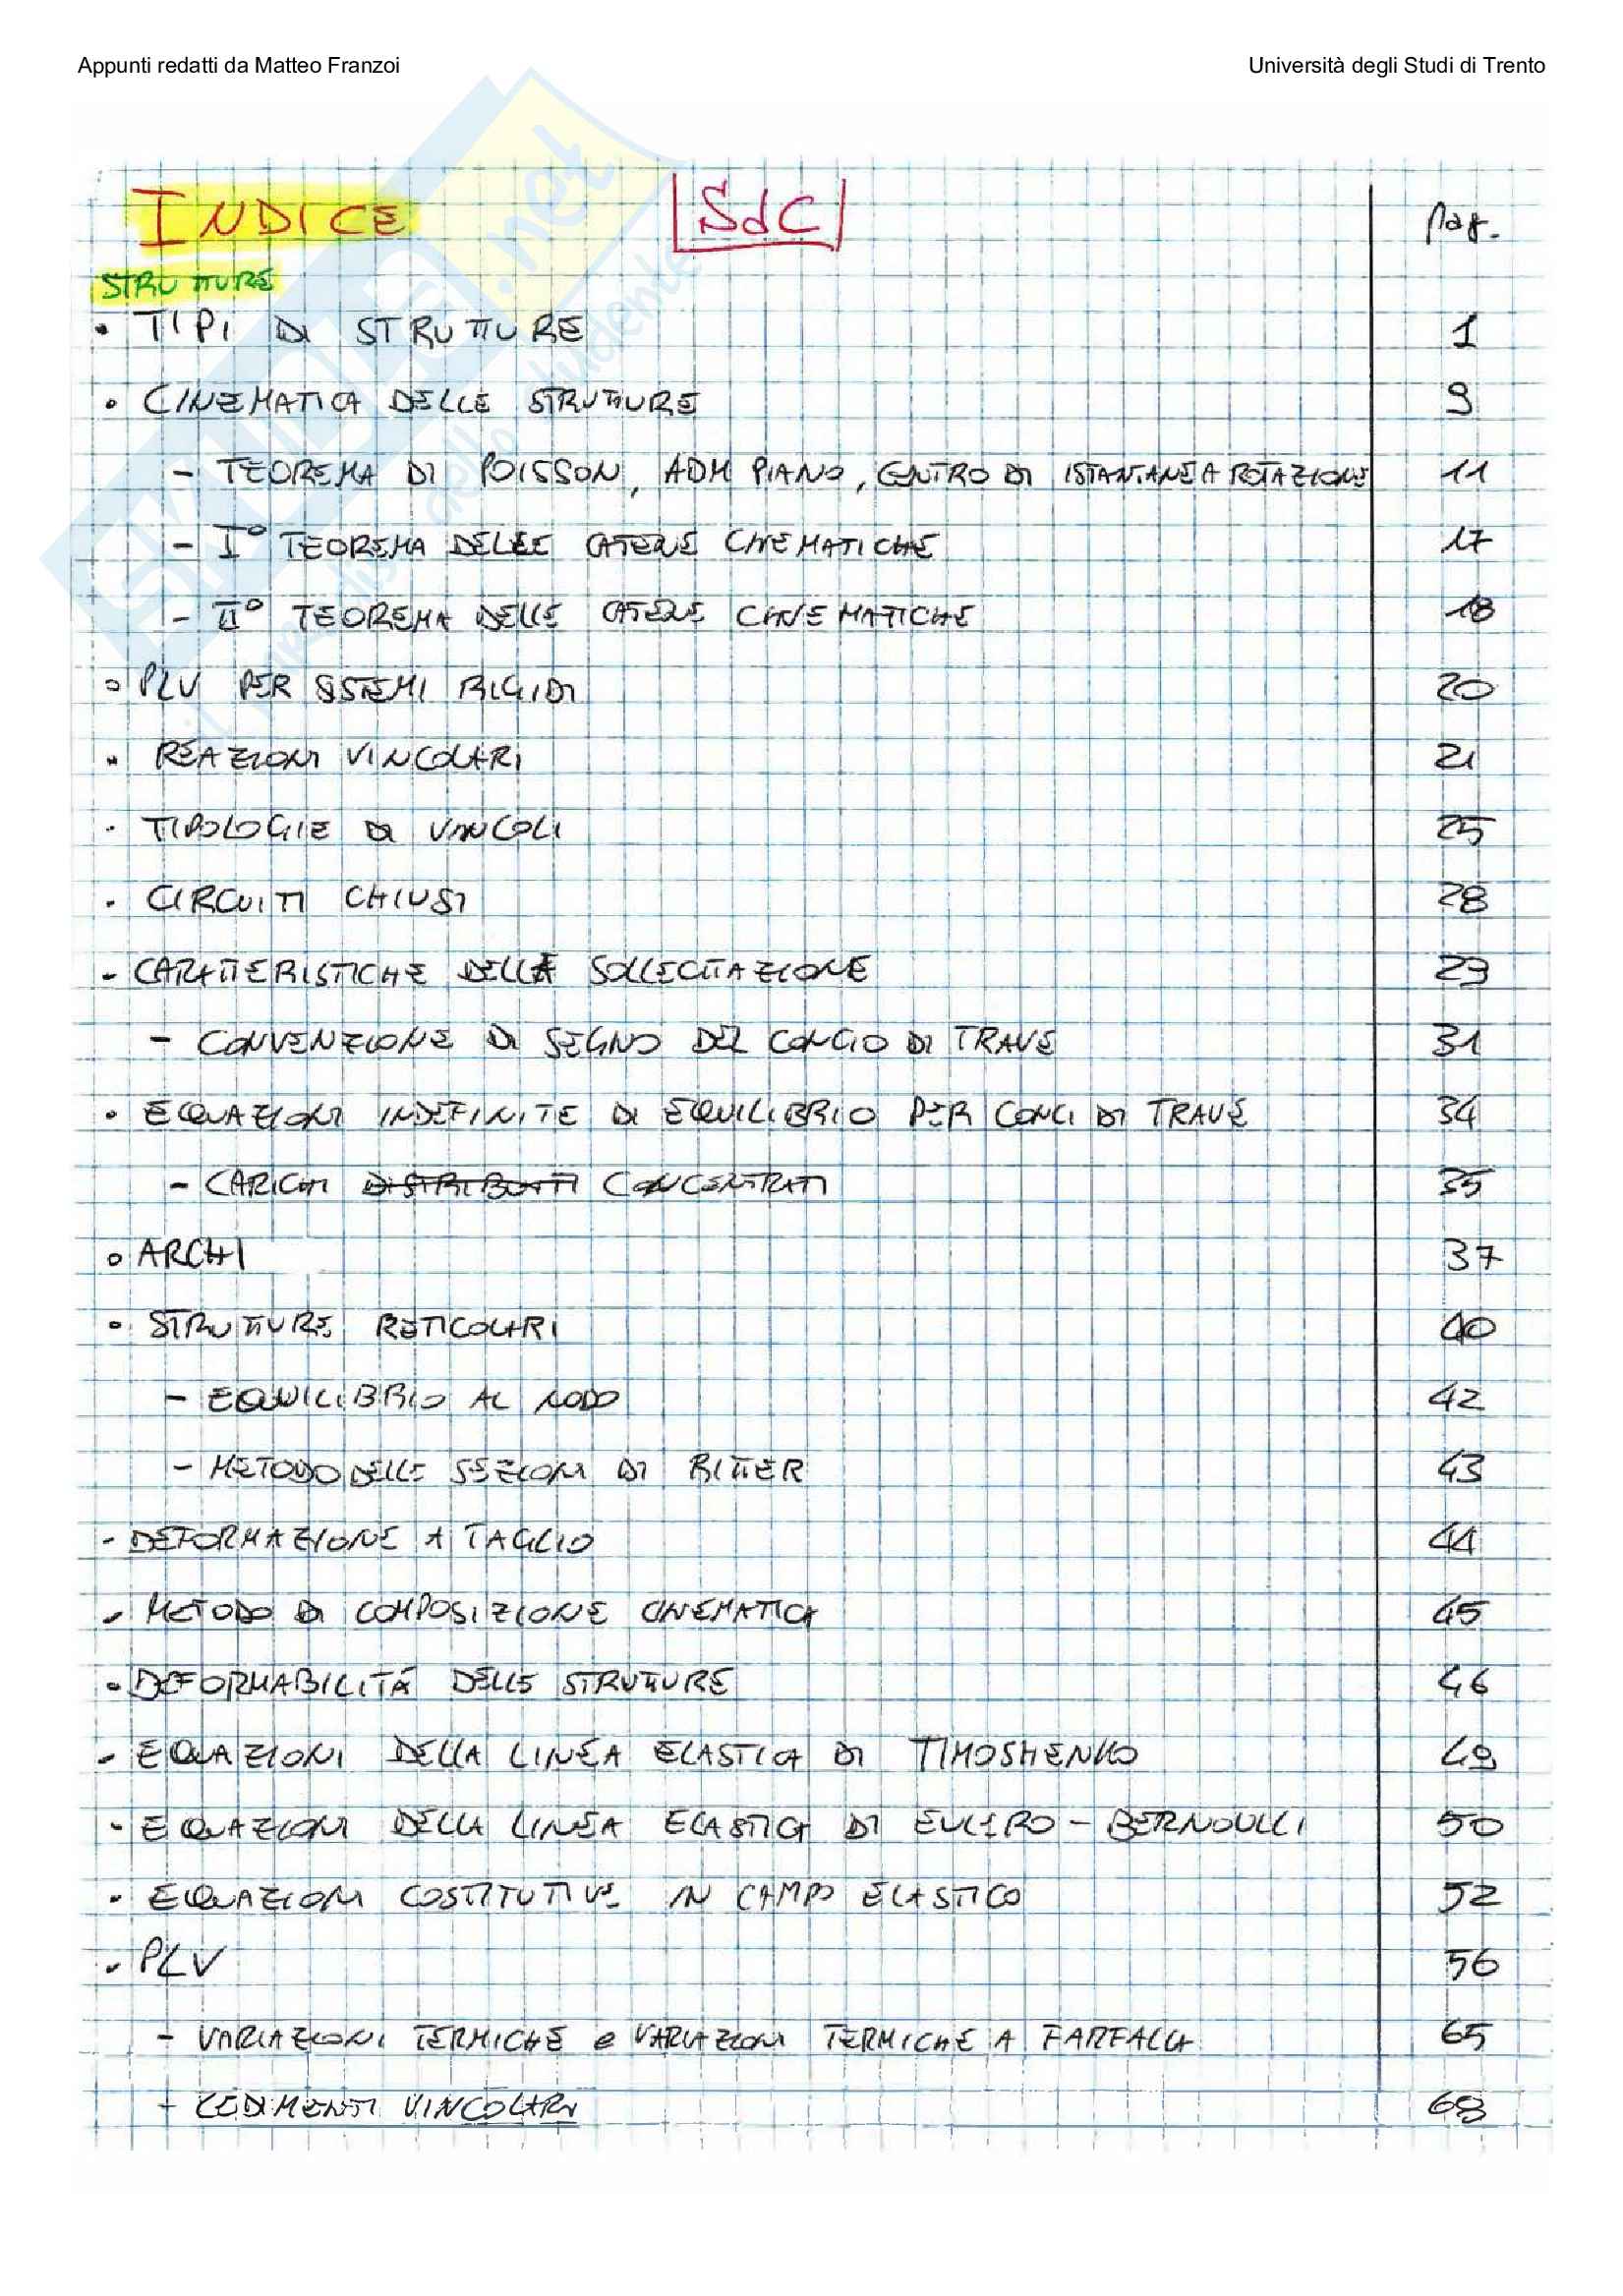 Appunti redatti da Matteo Franzoi
Università degli Studi di Trento
INDICE SdC pag.
STRUTTURE
• TIPI DI STRUTTURE 1
• CINEMATICA DELLE STRUTTURE 9
- TEOREMA DI POISSON, ADM PIANO, CENTRO DI ISTANTANEA ROTAZIONE 11
- I° TEOREMA DELLE CATENE CINEMATICHE 17
- II° TEOREMA DELLE CATENE CINEMATICHE 18
• PLV PER SISTEMI RIGIDI 20
• REAZIONI VINCOLARI 21
• TIPOLOGIE DI VINCOLI 25
• CIRCUITI CHIUSI 28
- CARATTERISTICHE DELLA SOLLECITAZIONE 29
- CONVENZIONE DI SEGNO DEL CONCIO DI TRAVE 31
• EQUAZIONI INDEFINITE DI EQUILIBRIO PER CONCI DI TRAVE 34
- CARICHI DISTRIBUITI CONCENTRATI 35
• ARCHI 37
• STRUTTURE RETICOLARI 40
- EQUILIBRIO AL NODO 42
- METODO DELLE SEZIONI DI RITTER 43
- DEFORMAZIONE A TAGLIO 44
- METODO DI COMPOSIZIONE CINEMATICA 45
• DEFORMABILITÁ DELLE STRUTTURE 46
- EQUAZIONI DELLA LINEA ELASTICA DI TIMOSHENKO 49
- EQUAZIONI DELLA LINEA ELASTICA DI EULERO - BERNOULLI 50
• EQUAZIONI COSTITUTIVE IN CAMPO ELASTICO 52
• PLV 56
- VARIAZIONI TERMICHE e VARIAZIONI TERMICHE A FARFALLA 65
- CEDIMENTI VINCOLARI 69
SKUOLA.net
il paradiso dello studente